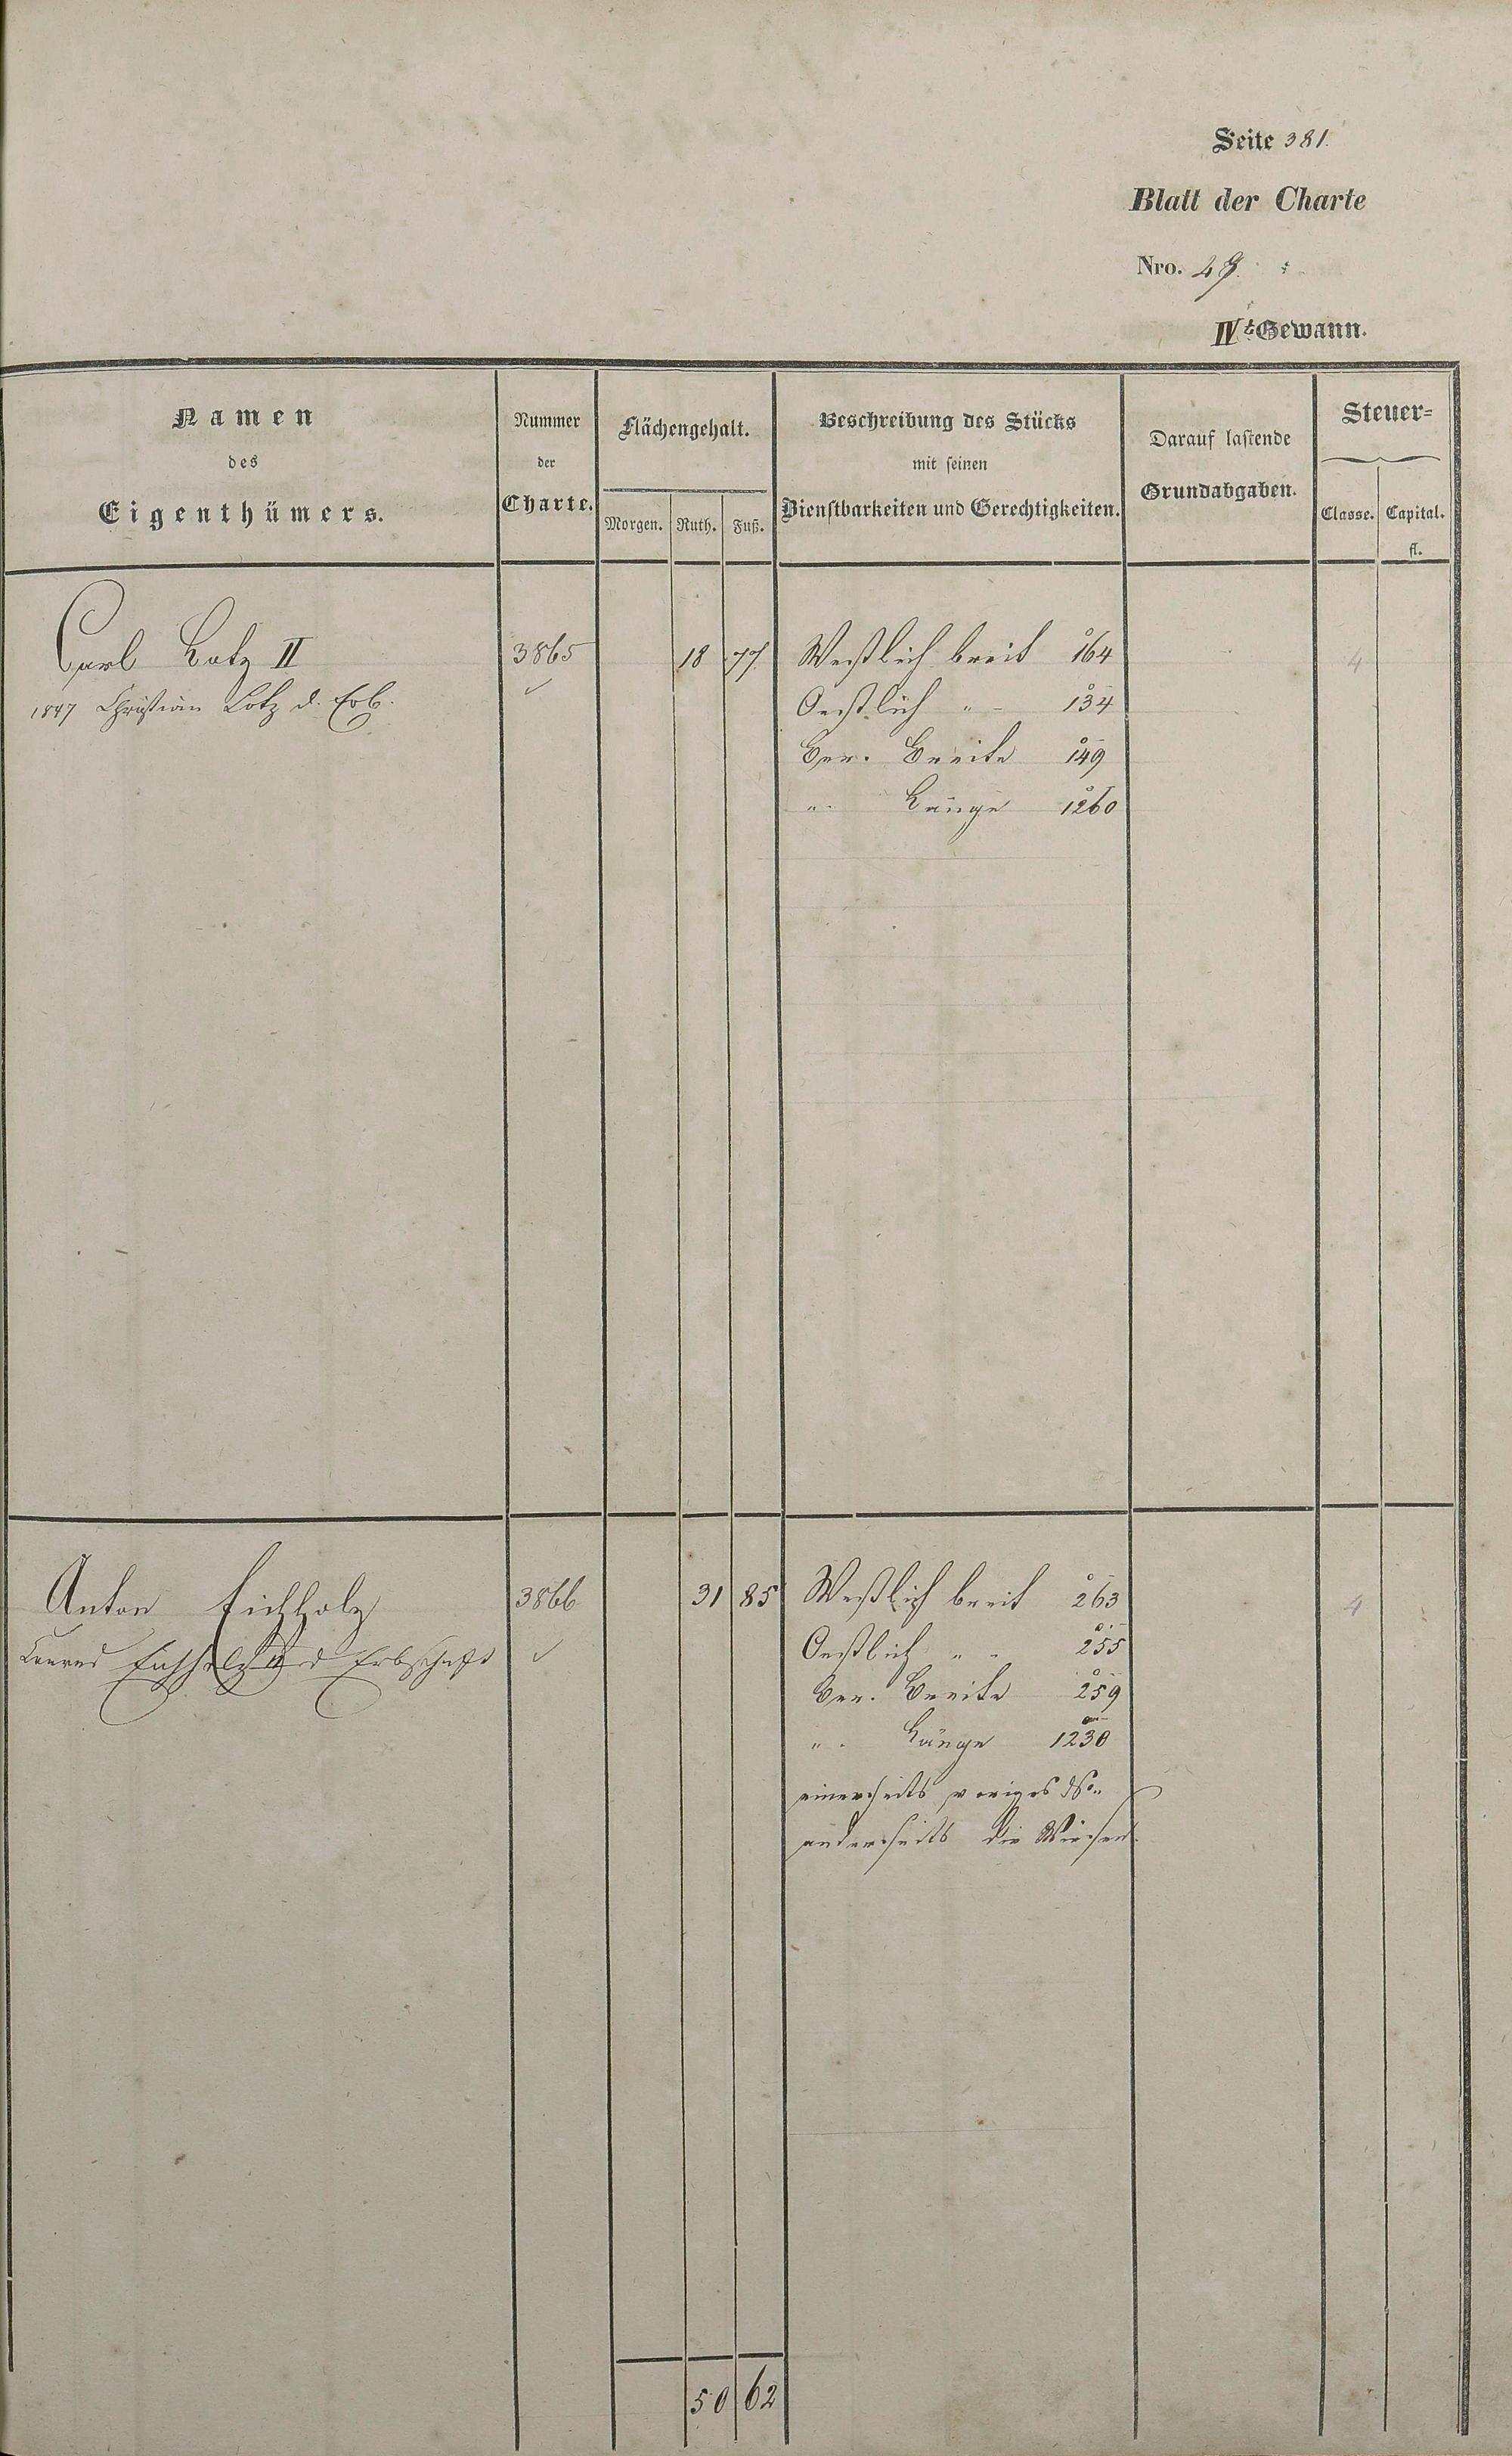 Seite 381.
Blatt der Charte
Nro. 49.
IVt Gewann.
Namen
des
Eigenthümers.
Nummer
der
Charte.
Flächengehalt.
Morgen. Ruth. Fuß.
Beschreibung des Stücks
mit seinen
Dienstbarkeiten und Gerechtigkeiten.
Darauf lastende
Grundabgaben.
Steuer-
Classe. Capital.
fl.
Carl Lotz II 3865 18 77 Westlich breit 164 4
1847 Christian Lotz d. Erb. Oestlich „ 134
Ber. Breite 149
„ Länge 1260
Anton Eichholz 3866 31 85 Westlich breit 263 4
Conrad Eichholz d Erbschaft Oestlich „ 255
Ber. Breite 259
„ Länge 1230
einerseits voriges No.
anderseits die Wiesen
50 62